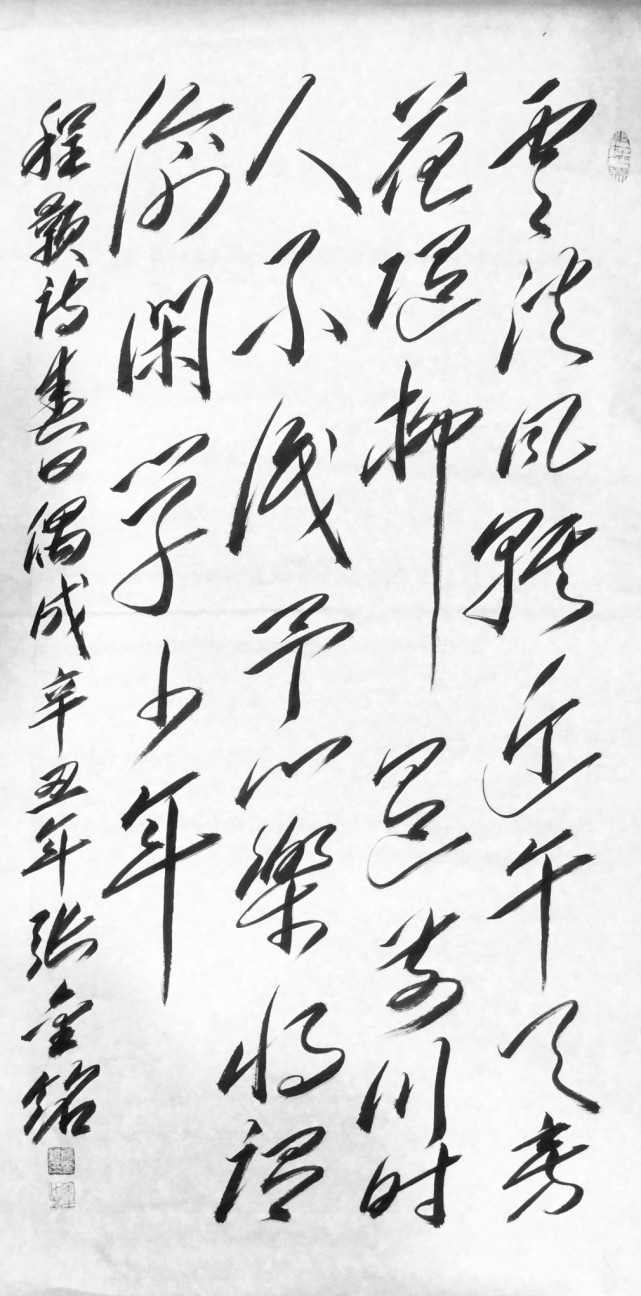 雲淡风輕近午天旁
花随柳過前川时
人不識予心樂将謂
偷閑学少年
程颢诗春日偶成辛丑年张金铭